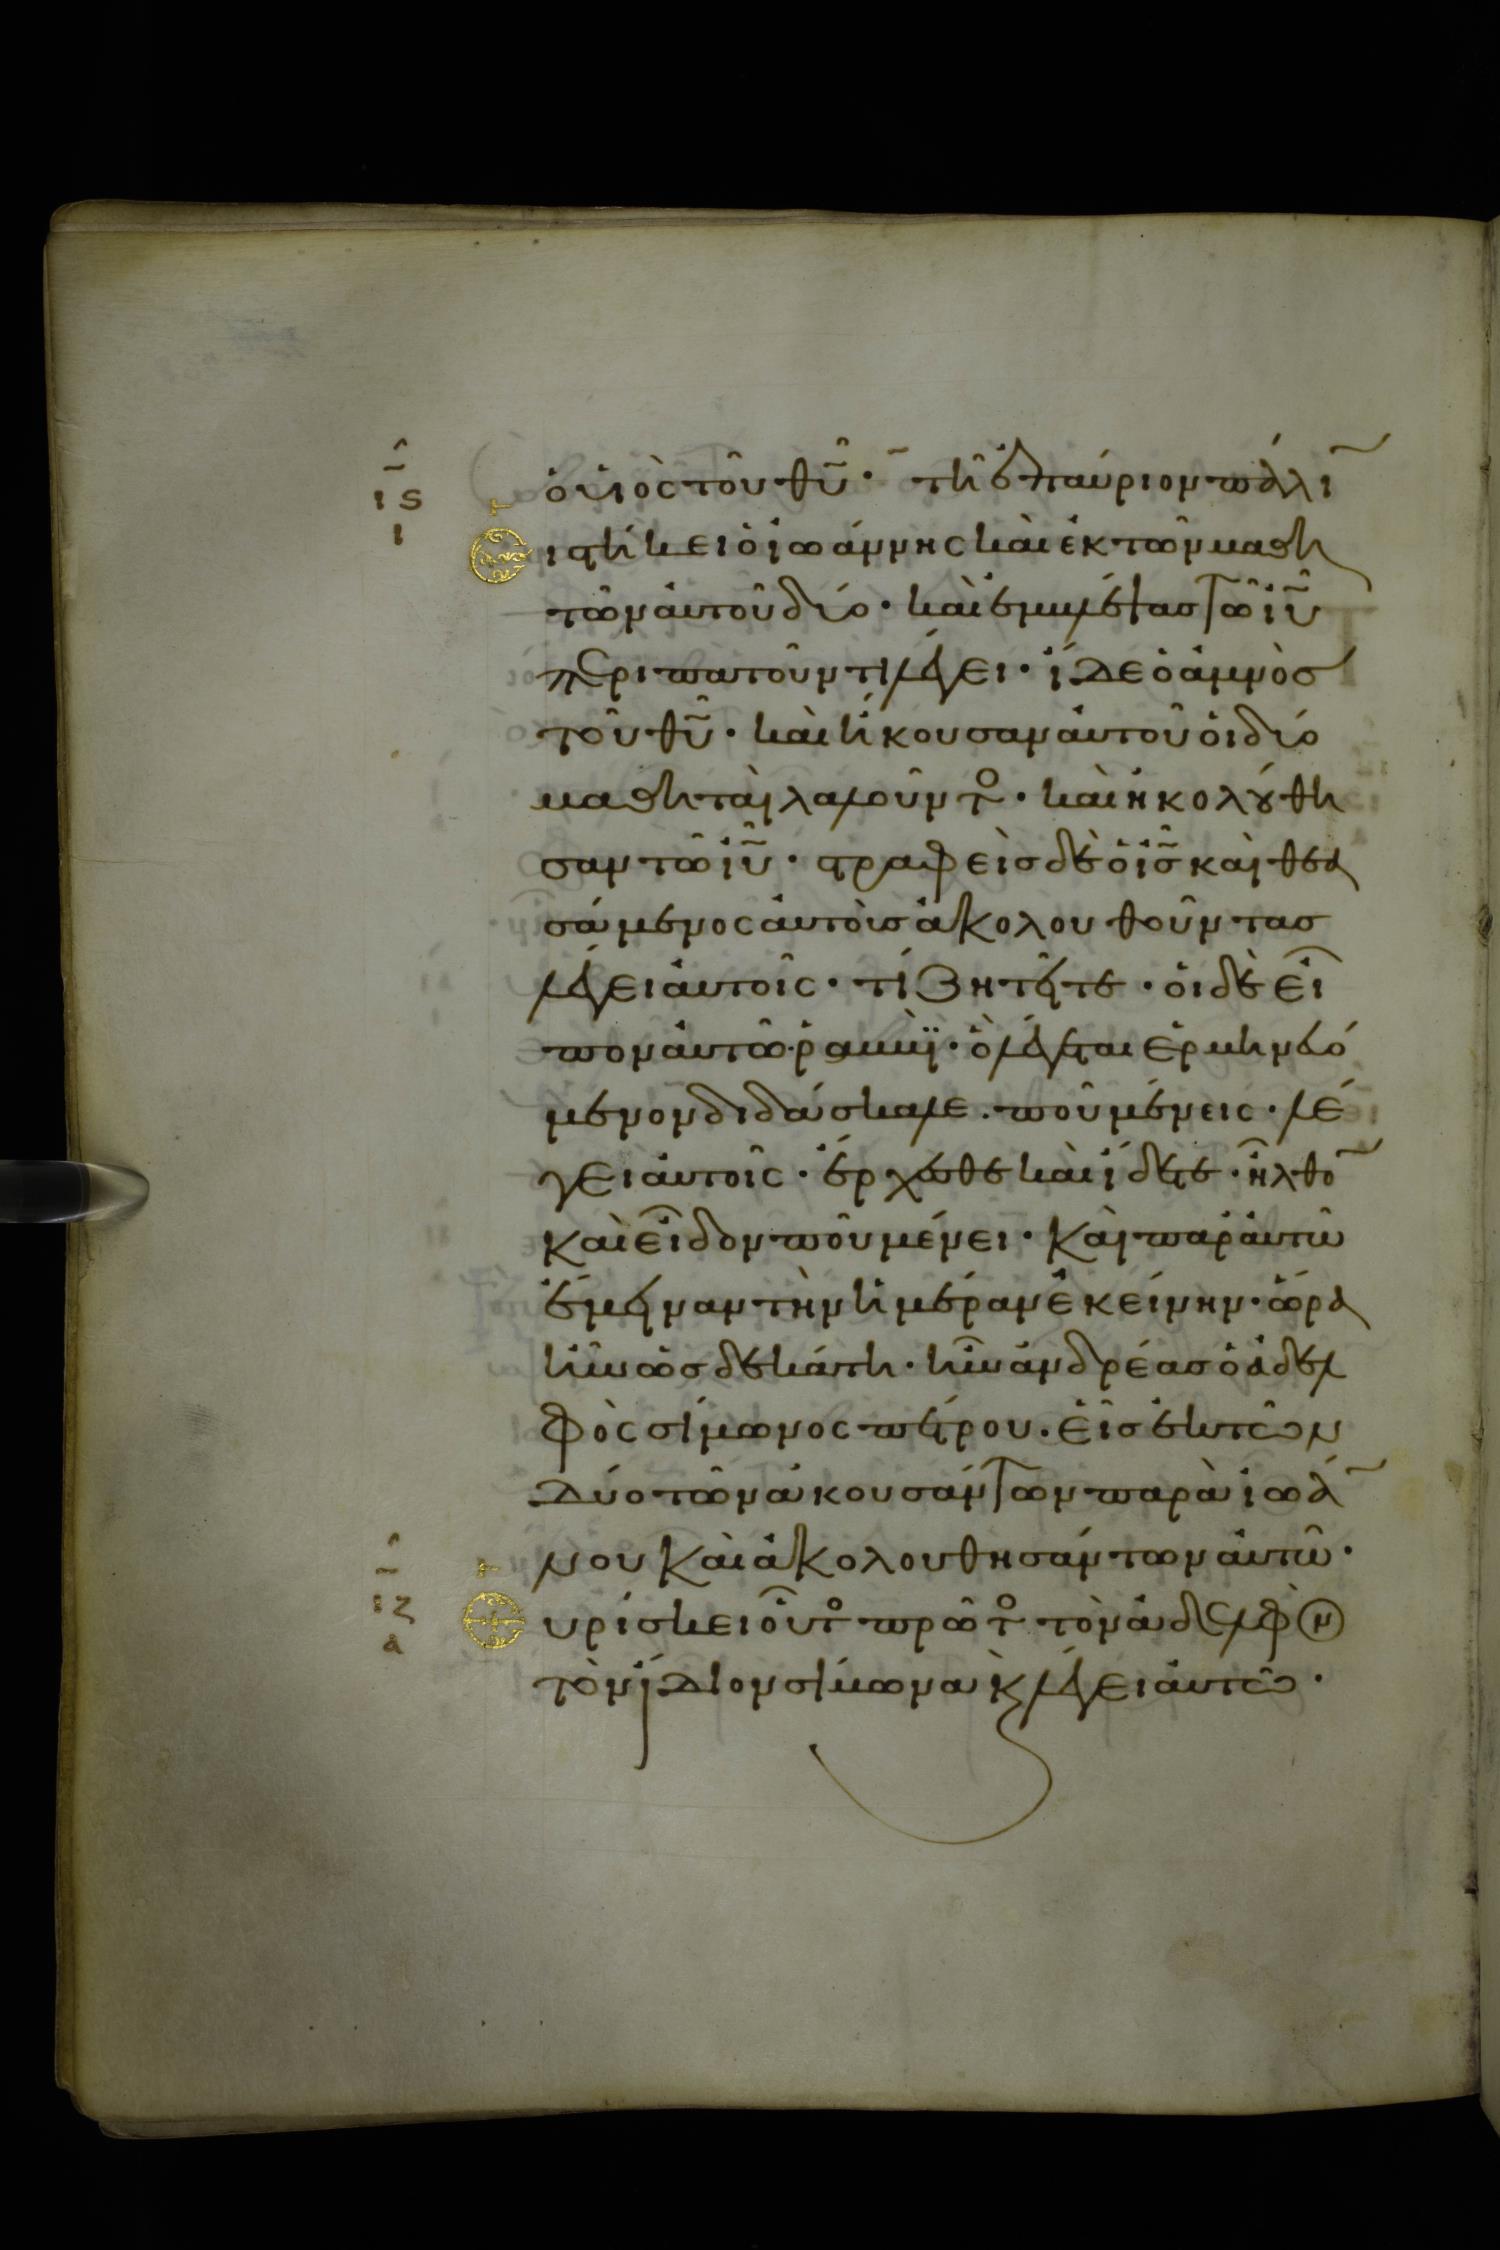 ὁ υἱὸς τοῦ θυ̃· τῆ ἐπαύριον πάλι
ις
ι
ιστήκει ὁ ἰωάννης καὶ ἐκ τῶν μαθη
τῶν αὐτοῦ δύο· καὶ ἐμβλέψας τῶ ἰυ̃
περιπατοῦντι λέγει· ἴδε ὁ ἀμνὸσ
τοῦ θυ̃· καὶ ἤκουσαν αὐτοῦ ὁι δύο
μαθηταὶ λαλοῦντο· καὶ ηκολȣ́θη
σαν τῶ ἰυ̃· στραφεὶσ δὲ ὁ ἰσ̃ καὶ θεα
σάμενος αὐτοὺσ ἀκολουθοῦντασ
λέγει αὐτοῖς· τί ζητεῖτε· ὁι δὲ εἶ
πον αὐτῶ· ῥαββὶ· ὃ λέγεται ἑρμηνευό
μενον διδάσκαλε· ποῦ μένεις· λέ
γει αὐτοῖς· ἔρχεσθε καὶ ἴδετε· ἦλθο
καὶ εἶδον ποῦ μένει· καὶ παρ' αὐτῶ
ἔμειναν τὴν ἡμέραν ἐκείνην· ὥρα
ἦν ὡσ δεκάτη· ἦν ἀνδρέασ ὁ ἀδελ
φὸς σίμωνος πέτρου· εἷσ ἐκ τῶν
δύο τῶν ἀκουσάντων παρὰ ἰωά
νου καὶ ἀκολουθησάντων αὐτῶ·
ιζ
α
υρίσκει οὗτο πρῶτο τὸν ἀδελφὸν
τὸν ἴδιον σίμωνα κ λέγει αὐτῶ·